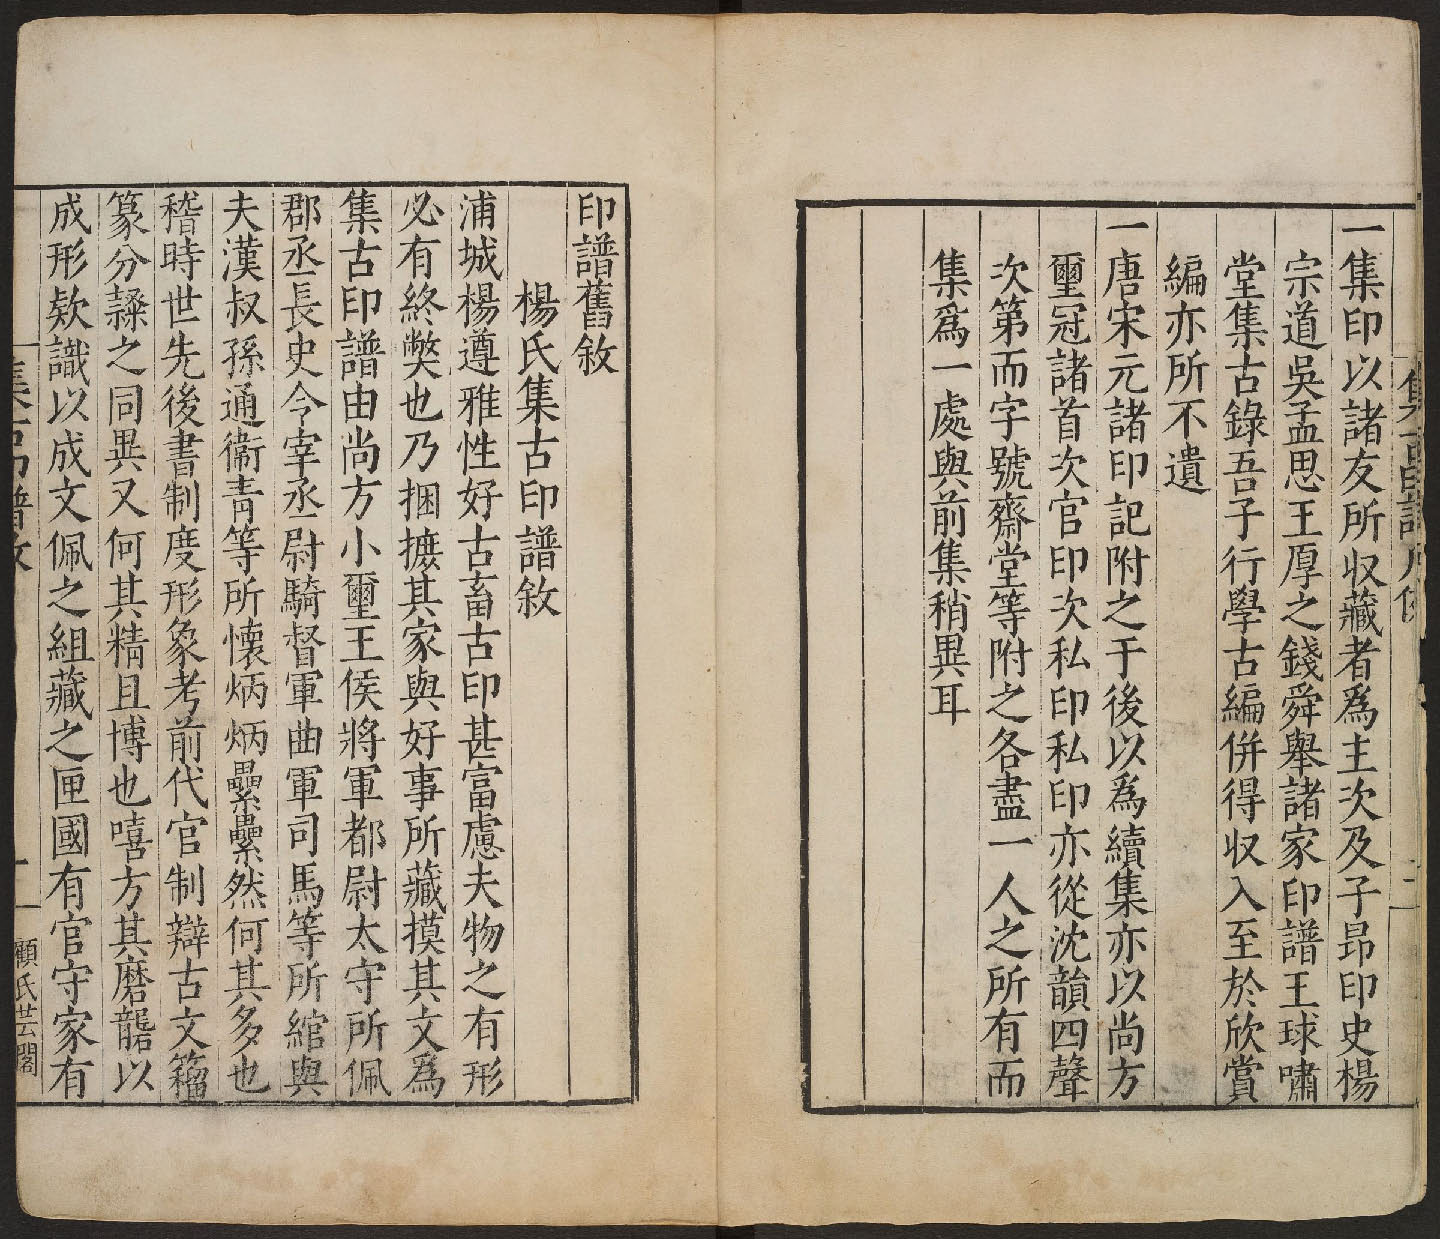 一集印以諸友所収藏者爲主次及子昂印史楊
宗道吳孟思王厚之錢舜舉諸家印譜王球嘯
堂集古錄吾子行學古編併得収入至於欣賞
編亦所不遺
一唐宋元諸印記附之于後以爲續集亦以尚方
璽冠諸首次官印次私印私印亦從沈韻四聲
次第而字號齋堂等附之各盡一人之所有而
集爲一處與前集稍異耳
二
印譜舊敘
楊氏集古印譜敘
浦城楊遵雅性好古畜古印甚富慮夫物之有形
必有終獘也乃捆摭其家與好事所藏摸其文爲
集古印譜由尚方小璽王侯將軍都尉太守所佩
郡丞長史令宰丞尉騎督軍曲軍司馬等所綰與
夫漢叔孫通衞青等所懐炳炳纍纍然何其多也
稽時世先後書制度形象考前代官制辯古文籀
篆分隷之同異又何其精且博也嘻方其磨礲以
成形欵識以成文佩之組藏之匣國有官守家有
集古印譜敘
一
顧氏芸閣